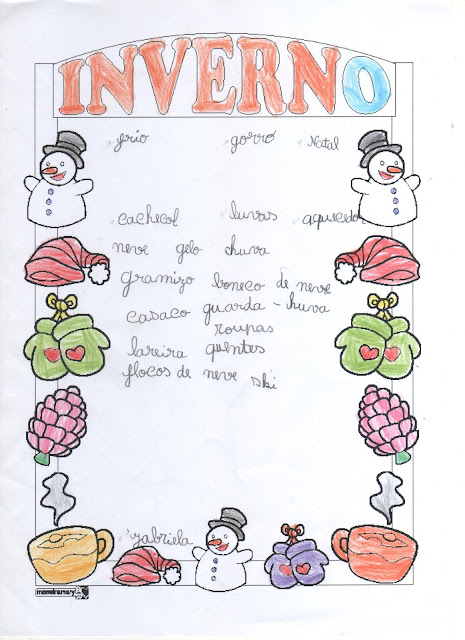 INVERNO
frio gorro Natal
cachecol luvas aquecedor
neve gelo chuva
gramizo boneco de neve
casaco guarda-huva
roupas
lareira quentes
flocos de neve ski
Gabriela